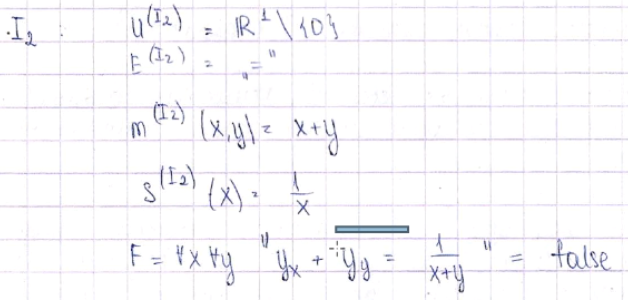 .I₂ : U^(I₂) = ℝ¹ \ {0}
E^(I₂) = "="
m^(I₂) (x,y) = x+y
s^(I₂) (x) = 1/x
F = ∀x ∀y " 1/x + 1/y = 1/(x+y) " = false